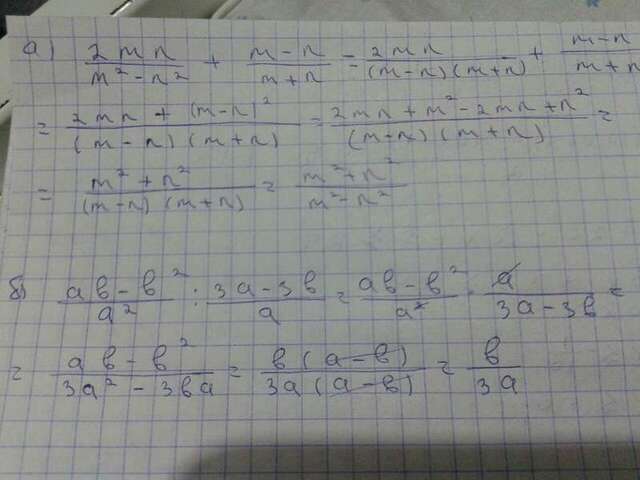 а) 2mn/(m² - n²) + (m - n)/(m + n) = 2mn/((m - n)(m + n)) + (m - n)/(m + n)
= (2mn + (m - n)²)/((m - n)(m + n)) = (2mn + m² - 2mn + n²)/((m - n)(m + n)) =
= (m² + n²)/((m - n)(m + n)) = (m² + n²)/(m² - n²)
б) (aв - в²)/a² : (3a - 3в)/a = (aв - в²)/a² · a/(3a - 3в) =
= (aв - в²)/(3a² - 3вa) = в(a - в)/(3a(a - в)) = в/(3a)